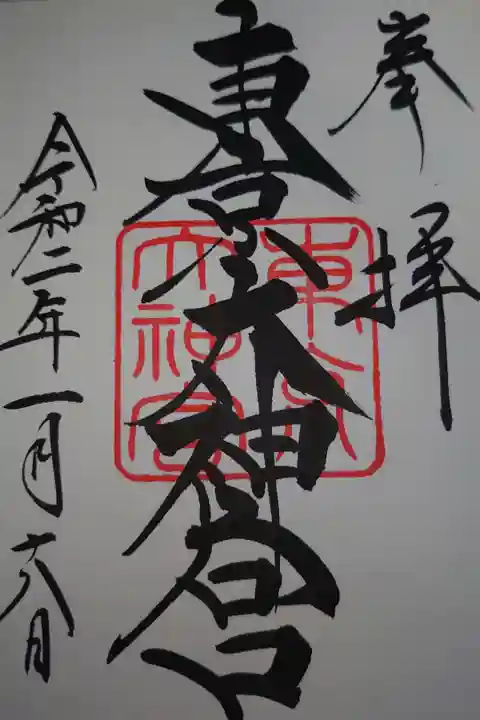 奉拝
東京大神宮
東京大神宮
令和二年一月十八日